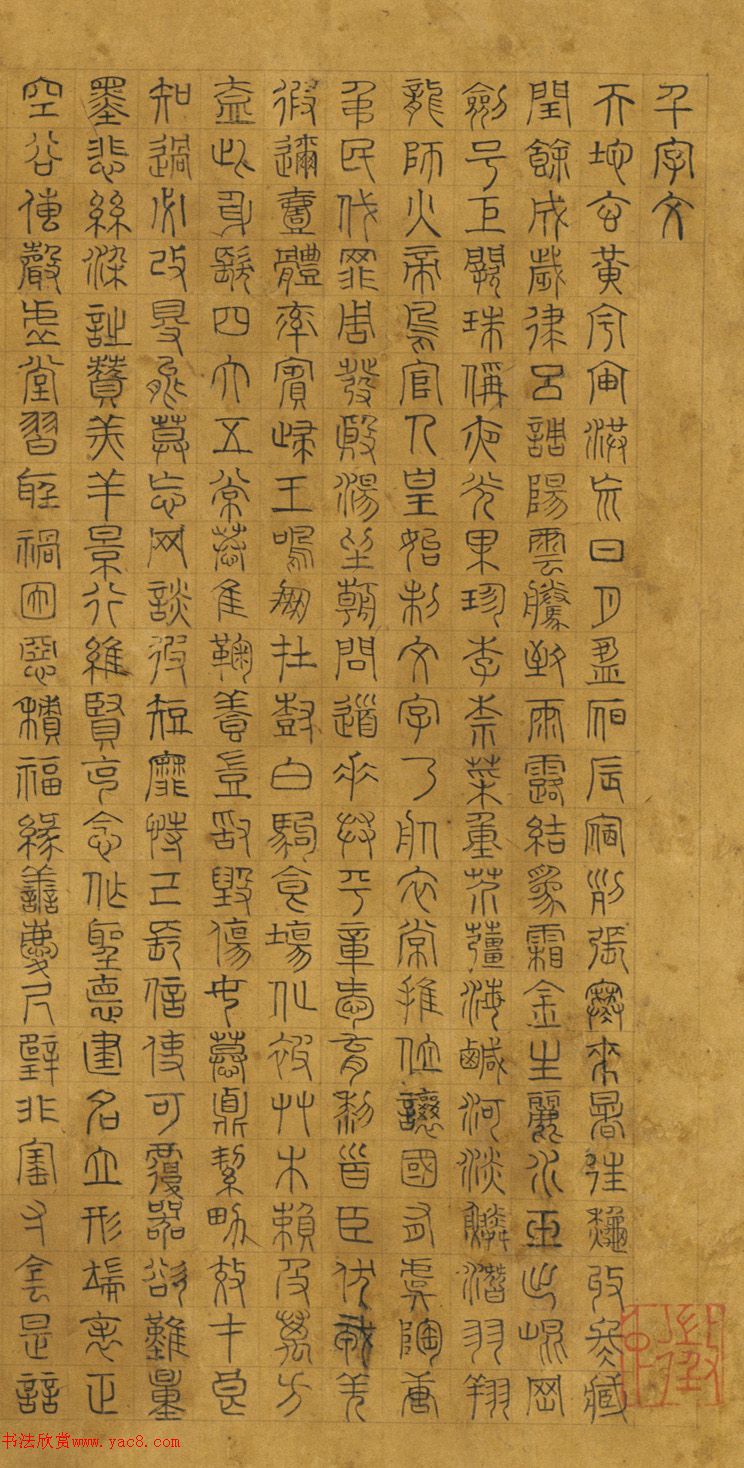 千字文
天地玄黃宇宙洪荒日月盈昃辰宿列張寒來暑往秋收冬藏
閏餘成歲律呂調陽雲騰致雨露結爲霜金生麗水玉出崐岡
劍号巨闕珠稱夜光果珍李柰菜重芥薑海鹹河淡鱗潛羽翔
龍師火帝鳥官人皇始制文字乃服衣裳推位讓國有虞陶唐
弔民伐罪周發殷湯坐朝問道垂拱平章愛育黎首臣伏戎羌
遐邇壹體率賓歸王鳴鳳在樹白駒食場化被草木賴及萬方
蓋此身髮四大五常恭惟鞠養豈敢毀傷女慕貞絜男效才良
知過必改得能莫忘罔談彼短靡恃己長信使可覆器欲難量
墨悲絲染詩讚羔羊景行維賢克念作聖德建名立形端表正
空谷傳聲虛堂習聽禍因惡積福緣善慶尺璧非寶寸陰是競
书法欣赏www.yac8.com